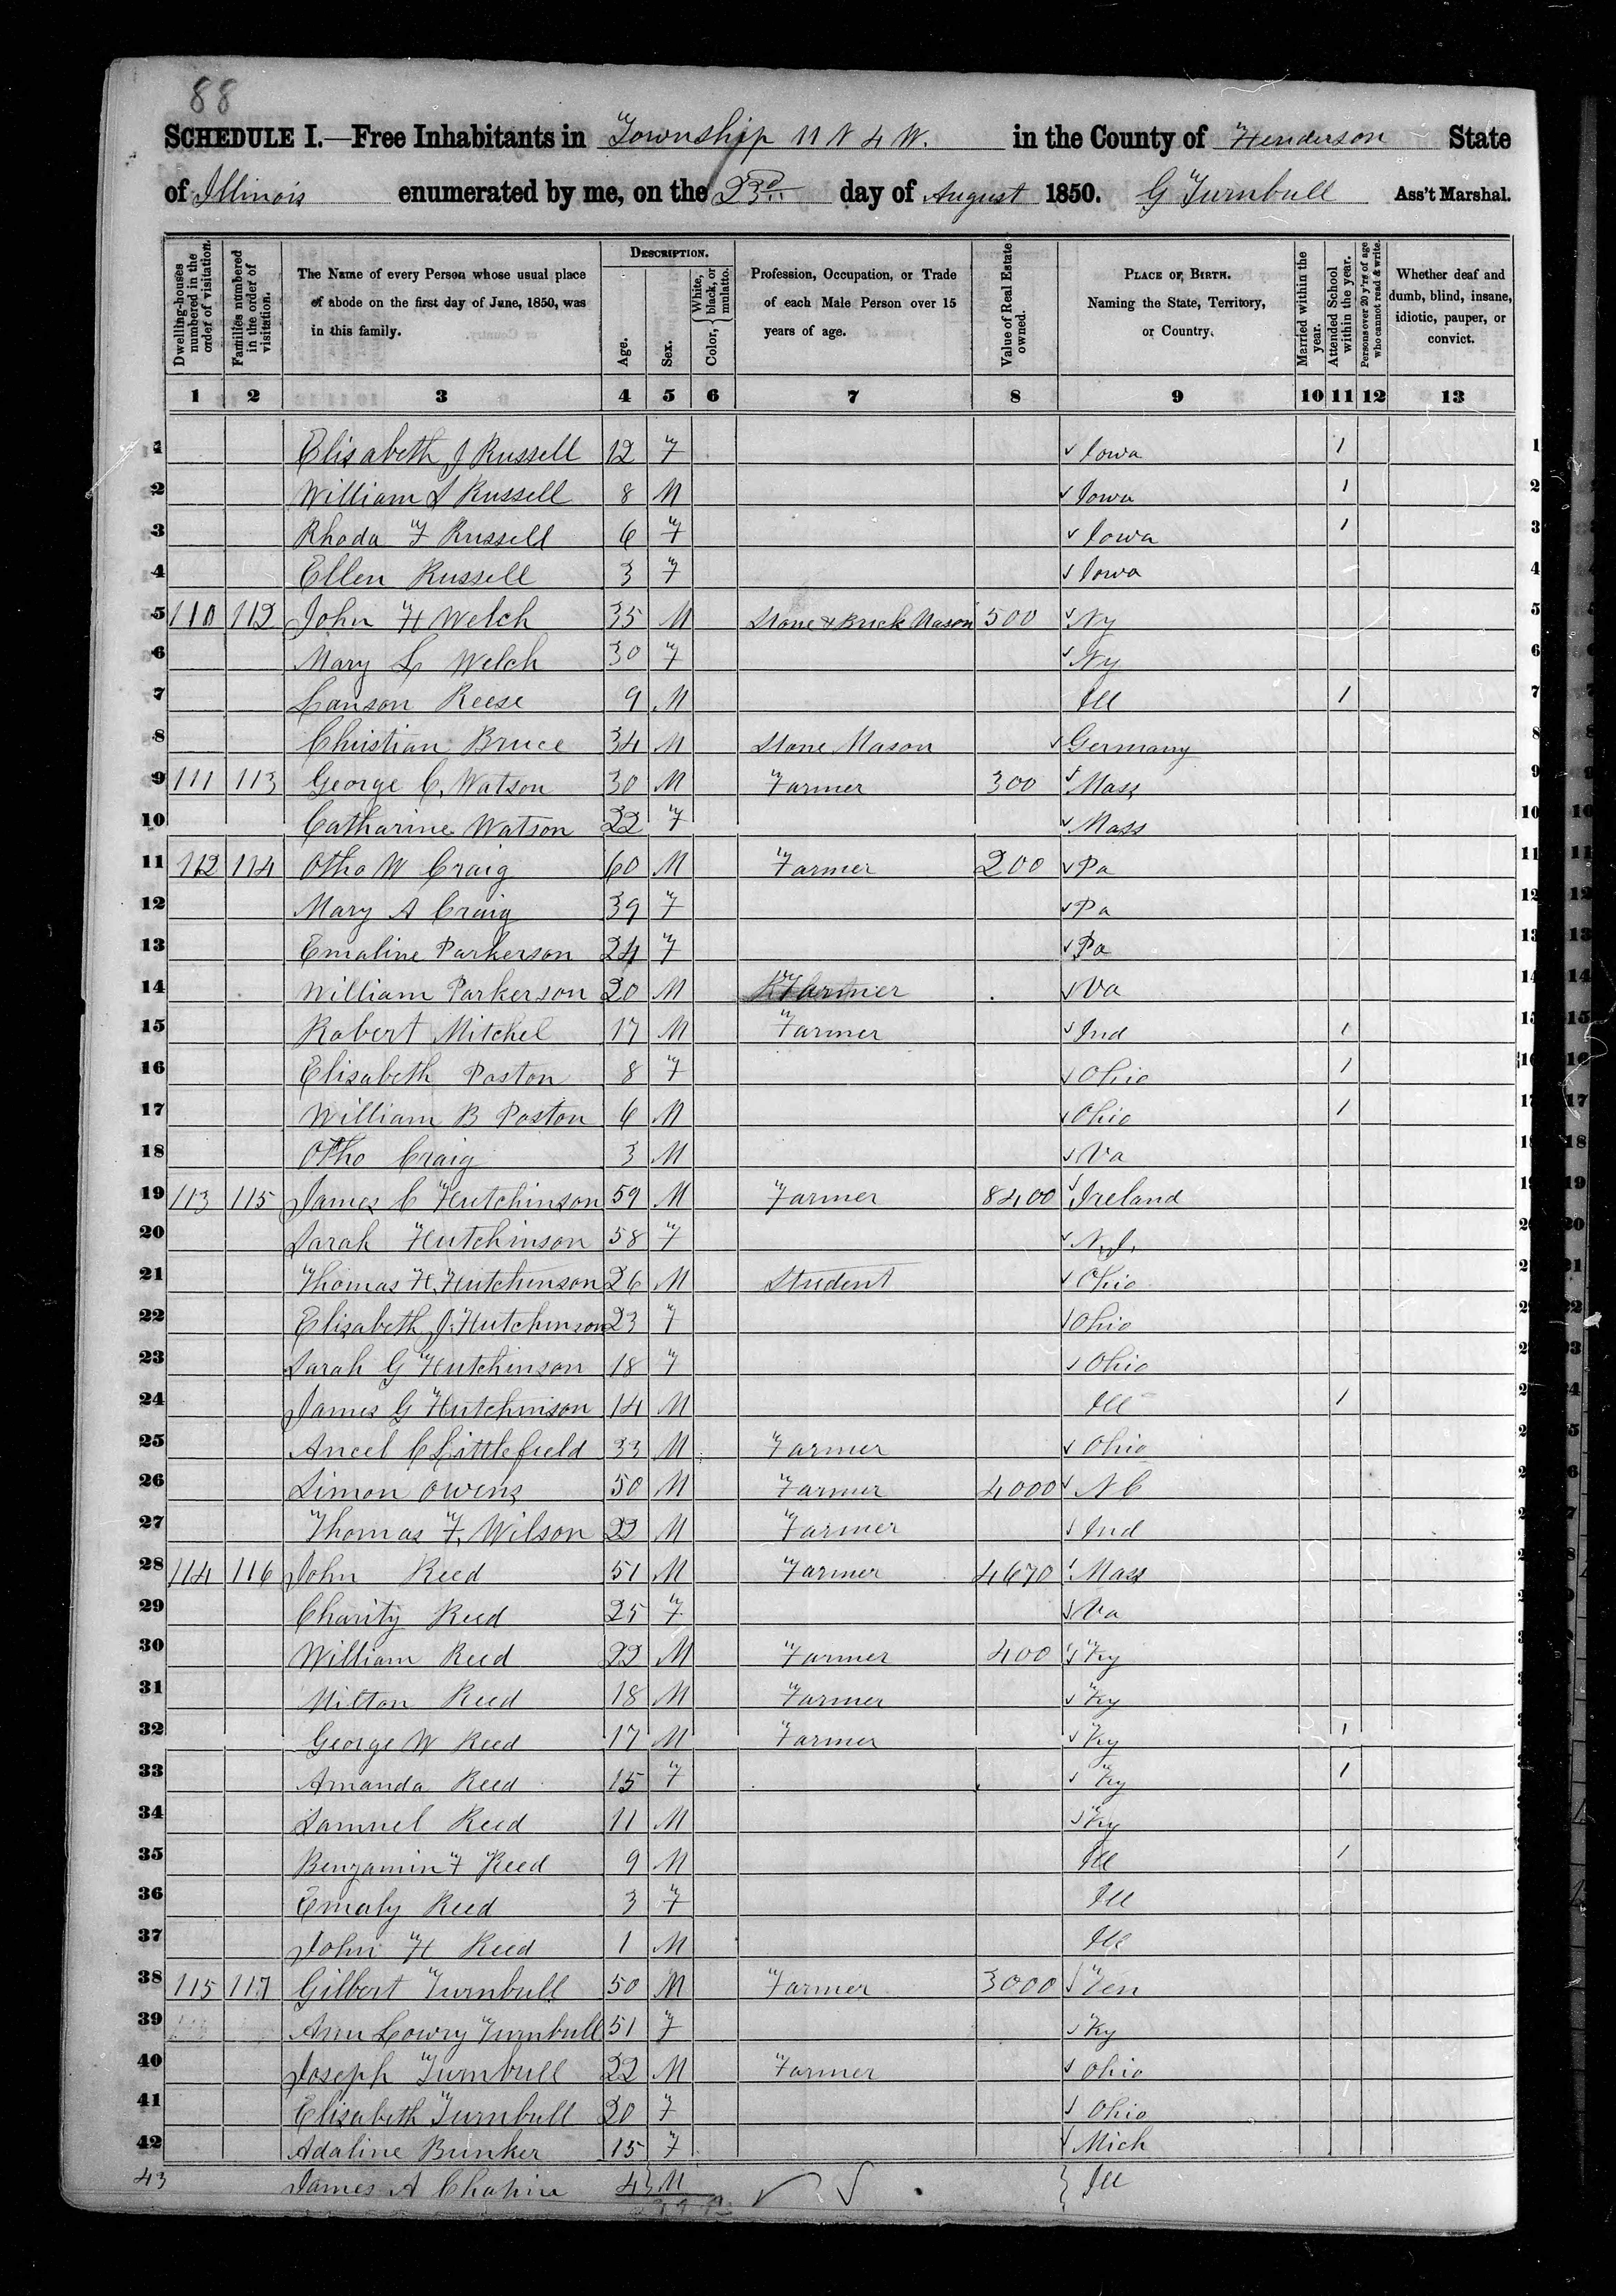 88
SCHEDULE I.—Free Inhabitants in Township 11 N 4 W. in the County of Henderson State
of Illinois enumerated by me, on the 23d day of August 1850. G Turnbull Ass't Marshal.
Dwelling-houses numbered in the order of visitation.
Families numbered in the order of visitation.
The Name of every Person whose usual place of abode on the first day of June, 1850, was in this family.
DESCRIPTION.
Age.
Sex.
Color, { White, black, or mulatto.
Profession, Occupation, or Trade of each Male Person over 15 years of age.
Value of Real Estate owned.
PLACE OF BIRTH. Naming the State, Territory, or Country.
Married within the year.
Attended School within the year.
Persons over 20 y'rs of age who cannot read & write.
Whether deaf and dumb, blind, insane, idiotic, pauper, or convict.
1 2 3 4 5 6 7 8 9 10 11 12 13
1 Elisabeth J Russell 12 F Iowa 1 1
2 William S Russell 8 M Iowa 1 2
3 Rhoda F Russell 6 F Iowa 1 3
4 Ellen Russell 3 F Iowa 4
5 110 112 John H Welch 35 M Stone & Brick Mason 500 Ny 5
6 Mary L Welch 30 F Ny 6
7 Lanson Reese 9 M Ill 1 7
8 Christian Bruce 34 M Stone Mason Germany 8
9 111 113 George C. Watson 30 M Farmer 300 Mass 9
10 Catharine Watson 22 F Mass 10
11 112 114 Otho W Craig 60 M Farmer 200 Pa 11
12 Mary A Craig 39 F Pa 12
13 Emaline Parkerson 24 F Pa 13
14 William Parkerson 20 M Farmer Va 14
15 Robert Mitchel 17 M Farmer Ind 1 15
16 Elisabeth Poston 8 F Ohio 1
17 William B Poston 6 M Ohio 1
18 Otho Craig 3 M Va
19 113 115 James C Hutchinson 59 M Farmer 8400 Ireland
20 Sarah Hutchinson 58 F N.J.
21 Thomas H. Hutchinson 26 M Student Ohio
22 Elisabeth J. Hutchinson 23 F Ohio
23 Sarah G Hutchinson 18 F Ohio
24 James G Hutchinson 14 M Ill 1
25 Ancel C Littlefield 33 M Farmer Ohio
26 Simon Owens 50 M Farmer 4000 N C
27 Thomas F. Wilson 22 M Farmer Ind
28 114 116 John Reed 51 M Farmer 4670 Mass
29 Charity Reed 25 F Va
30 William Reed 22 M Farmer 400 Ky
31 Milton Reed 18 M Farmer Ky
32 George W Reed 17 M Farmer Ky 1
33 Amanda Reed 15 F Ky 1
34 Samuel Reed 11 M Ky
35 Benjamin F Reed 9 M Ill 1
36 Emaly Reed 3 F Ill
37 John H Reed 1 M Ill
38 115 117 Gilbert Turnbull 50 M Farmer 3000 Ten
39 Ann Lowry Turnbull 51 F Ky
40 Joseph Turnbull 22 M Farmer Ohio
41 Elisabeth Turnbull 20 F Ohio
42 Adaline Bunker 15 F Mich
43 James A Chapin 4 M Ill